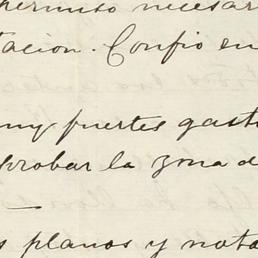 permiso necesar
tacion. Confio en
muy fuertes gast
probar la zona de
s planos y nota